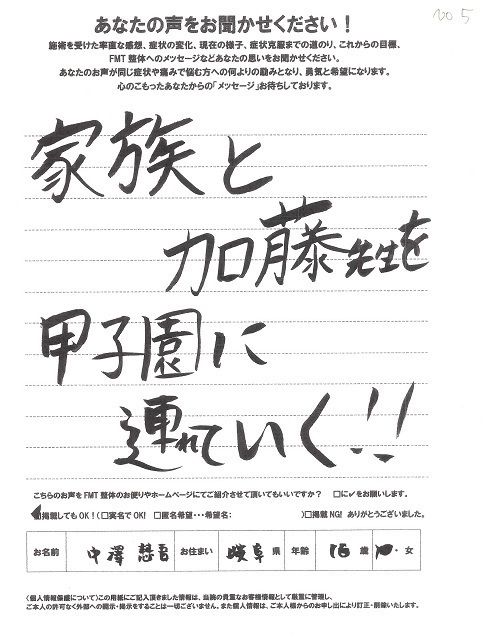 NO 5
あなたの声をお聞かせください！
施術を受けた率直な感想、症状の変化、現在の様子、症状克服までの道のり、これからの目標、
FMT整体へのメッセージなどあなたの思いをお聞かせください。
あなたのお声が同じ症状や痛みで悩む方への何よりの励みとなり、勇気と希望になります。
心のこもったあなたからの「メッセージ」お待ちしております。
家族と
加藤先生を
甲子園に
連れていく!!
こちらのお声をFMT整体のお便りやホームページにてご紹介させて頂いてもいいですか？ □に✓をお願いします。
□掲載してもOK！（□実名でOK! □匿名希望・・・希望名: ）□掲載NG! ありがとうございました。
お名前 中澤 吾 お住まい 岐阜 県 年齢 歳 ・女
〈個人情報保護について〉この用紙にご記入頂きました情報は、当院の貴重なお客様情報として厳重に管理し、
ご本人の許可なく外部への開示・掲示をすることは一切ございません。また個人情報は、ご本人様からのお申し出により訂正・削除いたします。